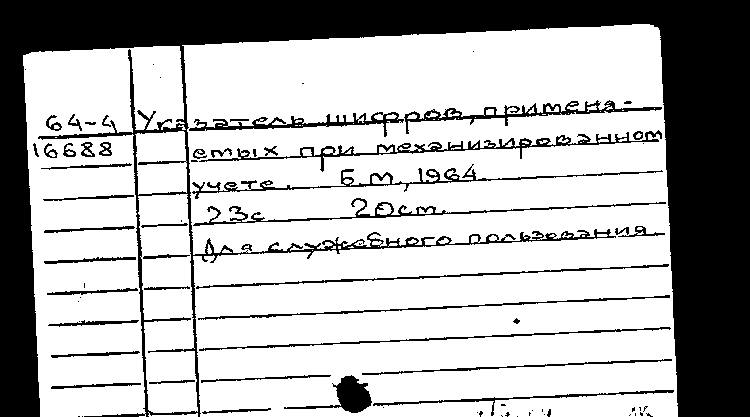 64-4 Указатель шифров, применя-
16688 емых при механизированном
учете. Б.м., 1964.
23с 20см.
Для служебного пользования.